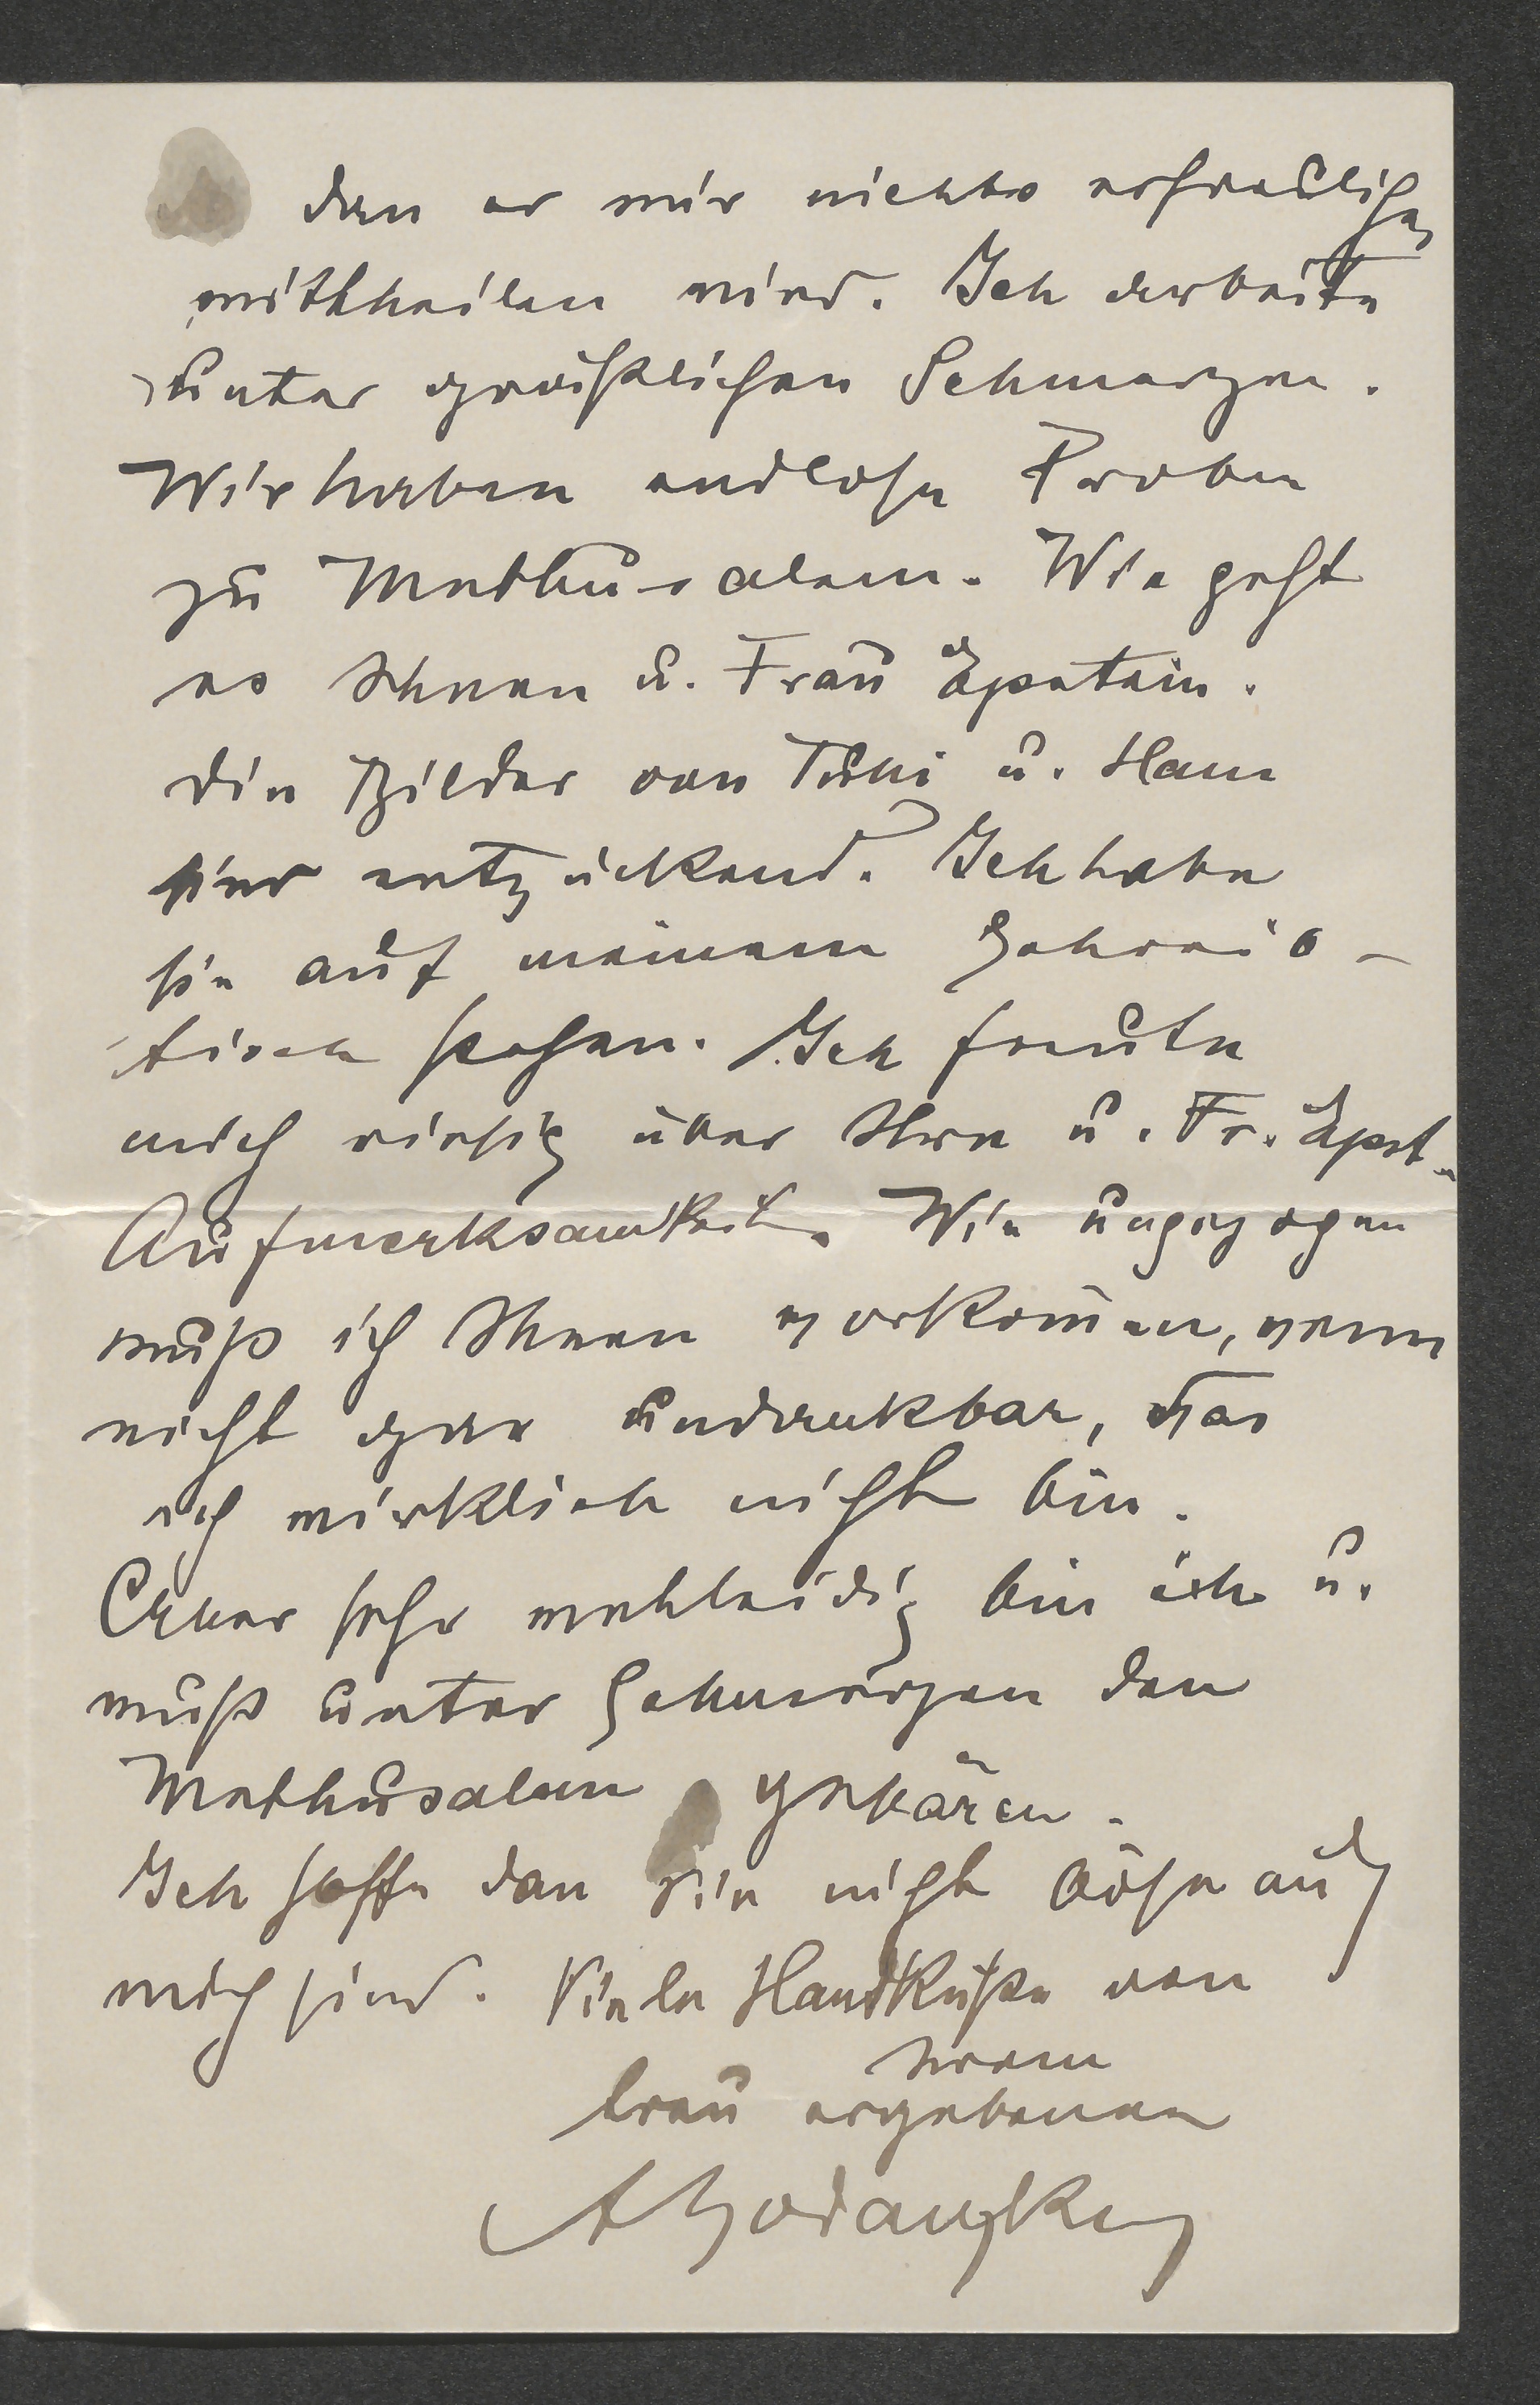 daß er mir nichts erfreuliches
mittheilen wird. Ich arbeite
unter gräßlichen Schmerzen.
Wir haben endlose Proben
zu Methusalem. Wie geht
es Ihnen u. Frau Epstein.
Die Bilder von u. Hans
sind entzückend. Ich habe
sie auf meinem Schreib-
tisch stehen. Ich freute
mich riesig über Ihre u. Fr. Epst.
Aufmerksamkeit. Wie ungezogen
muß ich Ihnen vorkommen, wenn
nicht gar undankbar, was
ich wirklich nicht bin.
Aber sehr wehleidig bin ich u.
muß unter Schmerzen den
Methusalem gebären.
Ich hoffe daß Sie nicht böse auf
mich sind. Viele Handküße von
Ihrem
treu ergebenen
ABodanzky